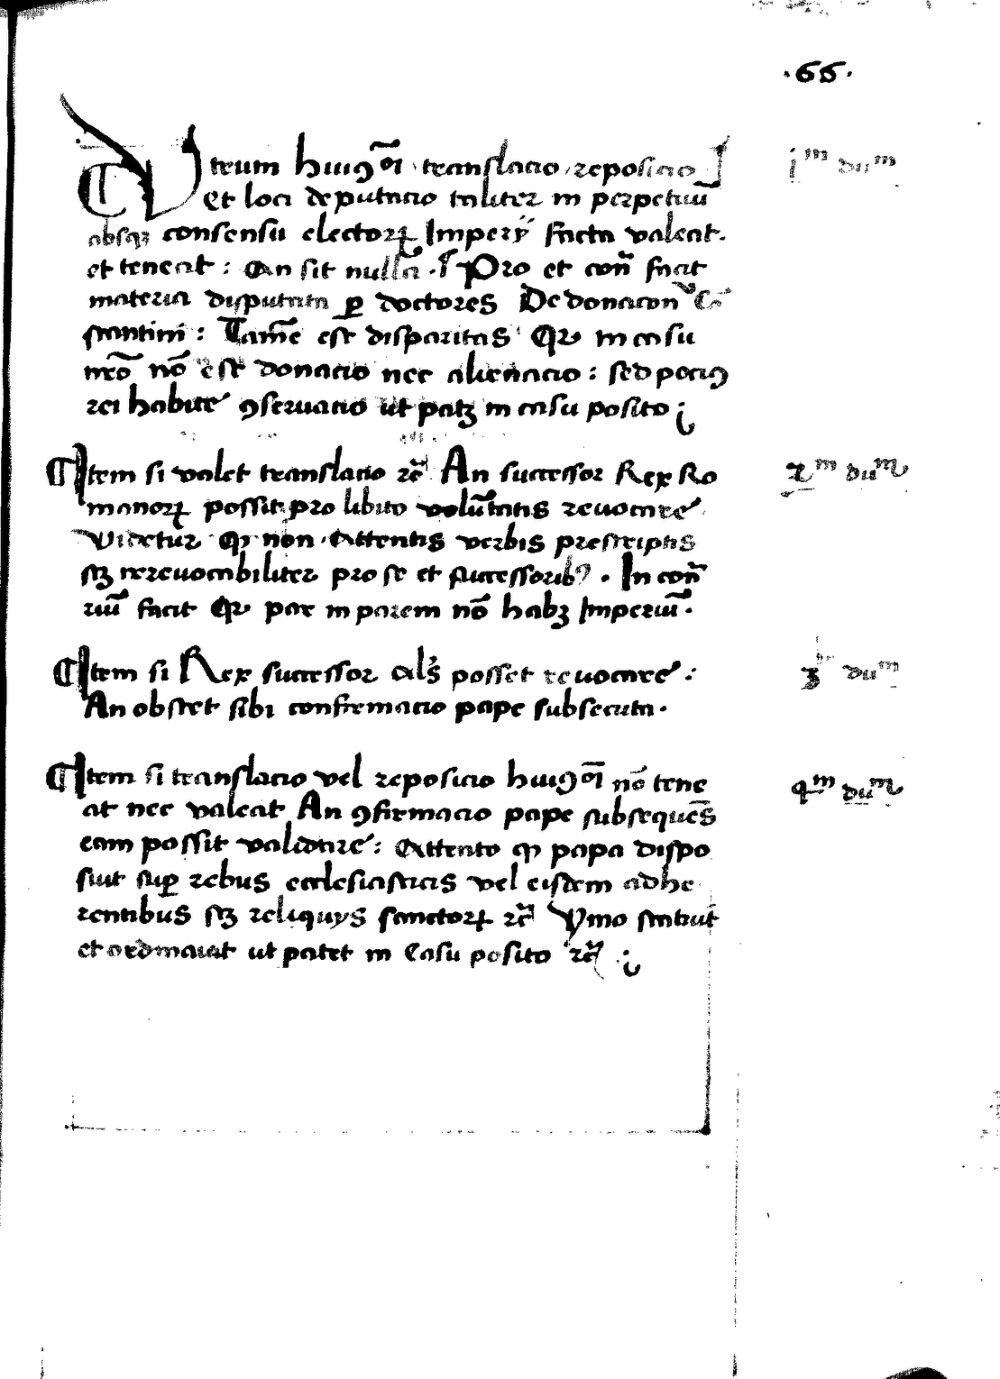 ·66·
Utrum huiꝯmoi translacio reposicio
j^m du^m
Et loci deputacio taliter in perpetuū
absqꝫ consensu electorꝝ Imperij facta valeat.
et teneat : An sit nulla. Pro et conͬ facit
materia disputata ꝑ doctores De donacon Cō
stantini : Tamē est disparitas Quia in casu
nr̄o nō est donacio nec alienacio : sed pociꝯ
rei habite ꝯseruacio ut patꝫ in casu posito
Item si valet translacio ꝛc̄ An successor Rex Ro
2^m du^m
manorꝝ possit pro libito volūtatis reuocare
Videtur qꝫ non Attentis verbis prescriptis
sꝫ irreuocabiliter pro se et successoribꝯ. In conͬ
riū facit Quia par in parem nō habꝫ Imperiū.
Item si Rex successor als̄ posset reuocare :
3^m du^m
An obstet sibi confirmacio pape subsecuta.
Item si translacio vel reposicio huiꝯmoi nō tene
4^m du^m
at nec valeat An ꝯfirmacio pape subsequēs
eam possit validare : Attento qꝫ papa dispo
siuit suꝑ rebus ecclesiasticis vel eisdem adhe
rentibus sꝫ reliquijs sanctorꝝ ꝛc̄ Ymo statuit
et ordinauit ut patet in Casu posito ꝛc̄